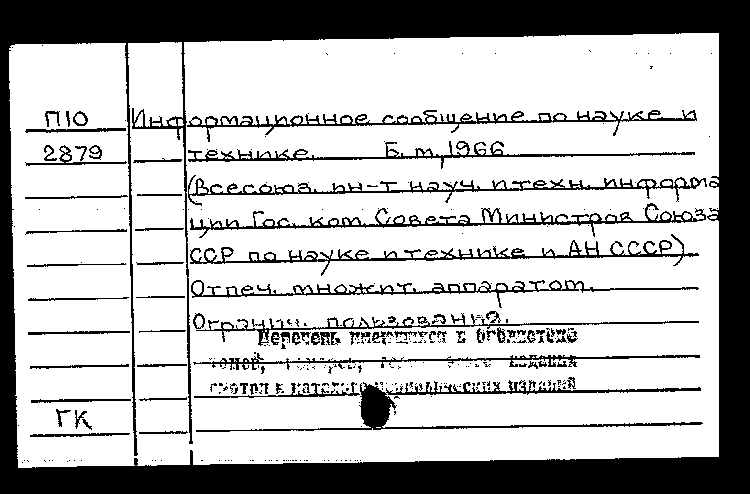 П10 Информационное сообщение по науке и
2879 технике. Б.м., 1966
(Всесоюз. ин-т науч. и техн. информа
ции Гос. ком. Совета Министров Союза
ССР по науке и технике и АН СССР)
Отпеч. множит. аппаратом.
Огранич. пользования.
Перечень имеющихся в библиотеке
томов, номеров, этого издания
смотри в каталоге периодических изданий
ГК